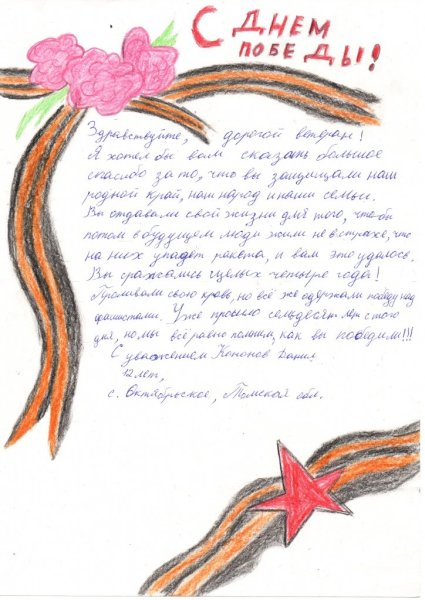 С ДНЕМ
ПОБЕДЫ!
Здравствуйте, дорогой ветеран!
Я хотел бы вам сказать большое
спасибо за то, что вы защищали наш
родной край, наш народ и наши семьи.
Вы отдавали свои жизни для того, чтобы
потом в будущем люди жили не в страхе, что
на них упадет ракета, и вам это удалось.
Вы сражались целых четыре года!
Проливали свою кровь, но всё же одержали победу над
фашистами. Уже прошло семьдесят лет с того
дня, но мы всё равно помним, как вы победили!!!
С уважением Кононов Данил
12 лет,
с. Октябрьское, Томская обл.